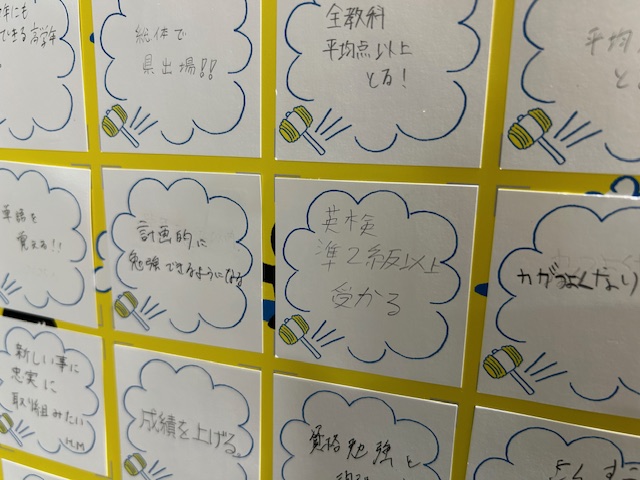 できる高学年
総体で
県出場!!
全教科
平均点以上
とる!
平均
と
単語を
覚える!!
計画的に
勉強できるようになる
英検
準2級以上
受かる
新しい事に
忠実に
取り組みたい
M.M
成績を上げる。
資格勉強と